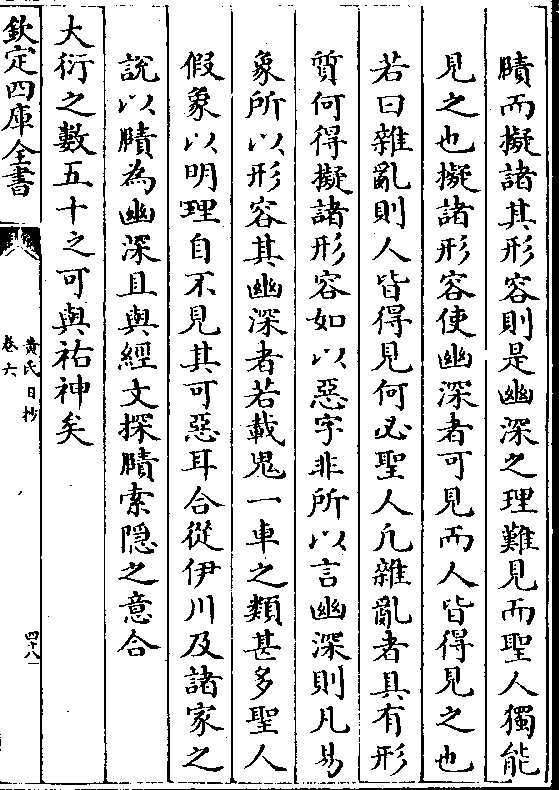 賾而擬諸其形容則是幽深之理難見而聖人獨能
見之也擬諸形容使幽深者可見而人皆得見之也
若曰雜亂則人皆得見何必聖人凡雜亂者具有形
質何得擬諸形容如以惡字非所以言幽深則凡易
象所以形容其幽深者若載鬼一車之類甚多聖人
假象以明理自不見其可惡耳合從伊川及諸家之
說以賾為幽深且與經文探賾索隱之意合
大衍之數五十之可與祐神矣
欽定四庫全書
黄氏日抄
卷六
四十八